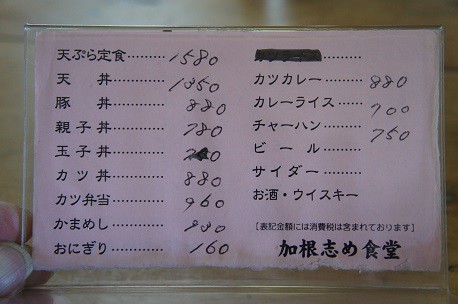 天ぷら定食………1580
天　丼…………1350
豚　丼…………880
親子丼…………780
玉子丼…………
カツ丼…………880
カツ弁当………960
かまめし………930
おにぎり………160
…………
カツカレー………880
カレーライス……700
チャーハン………750
ビール…………
サイダー………
お酒・ウイスキー
［表記金額には消費税は含まれております］
加根志め食堂